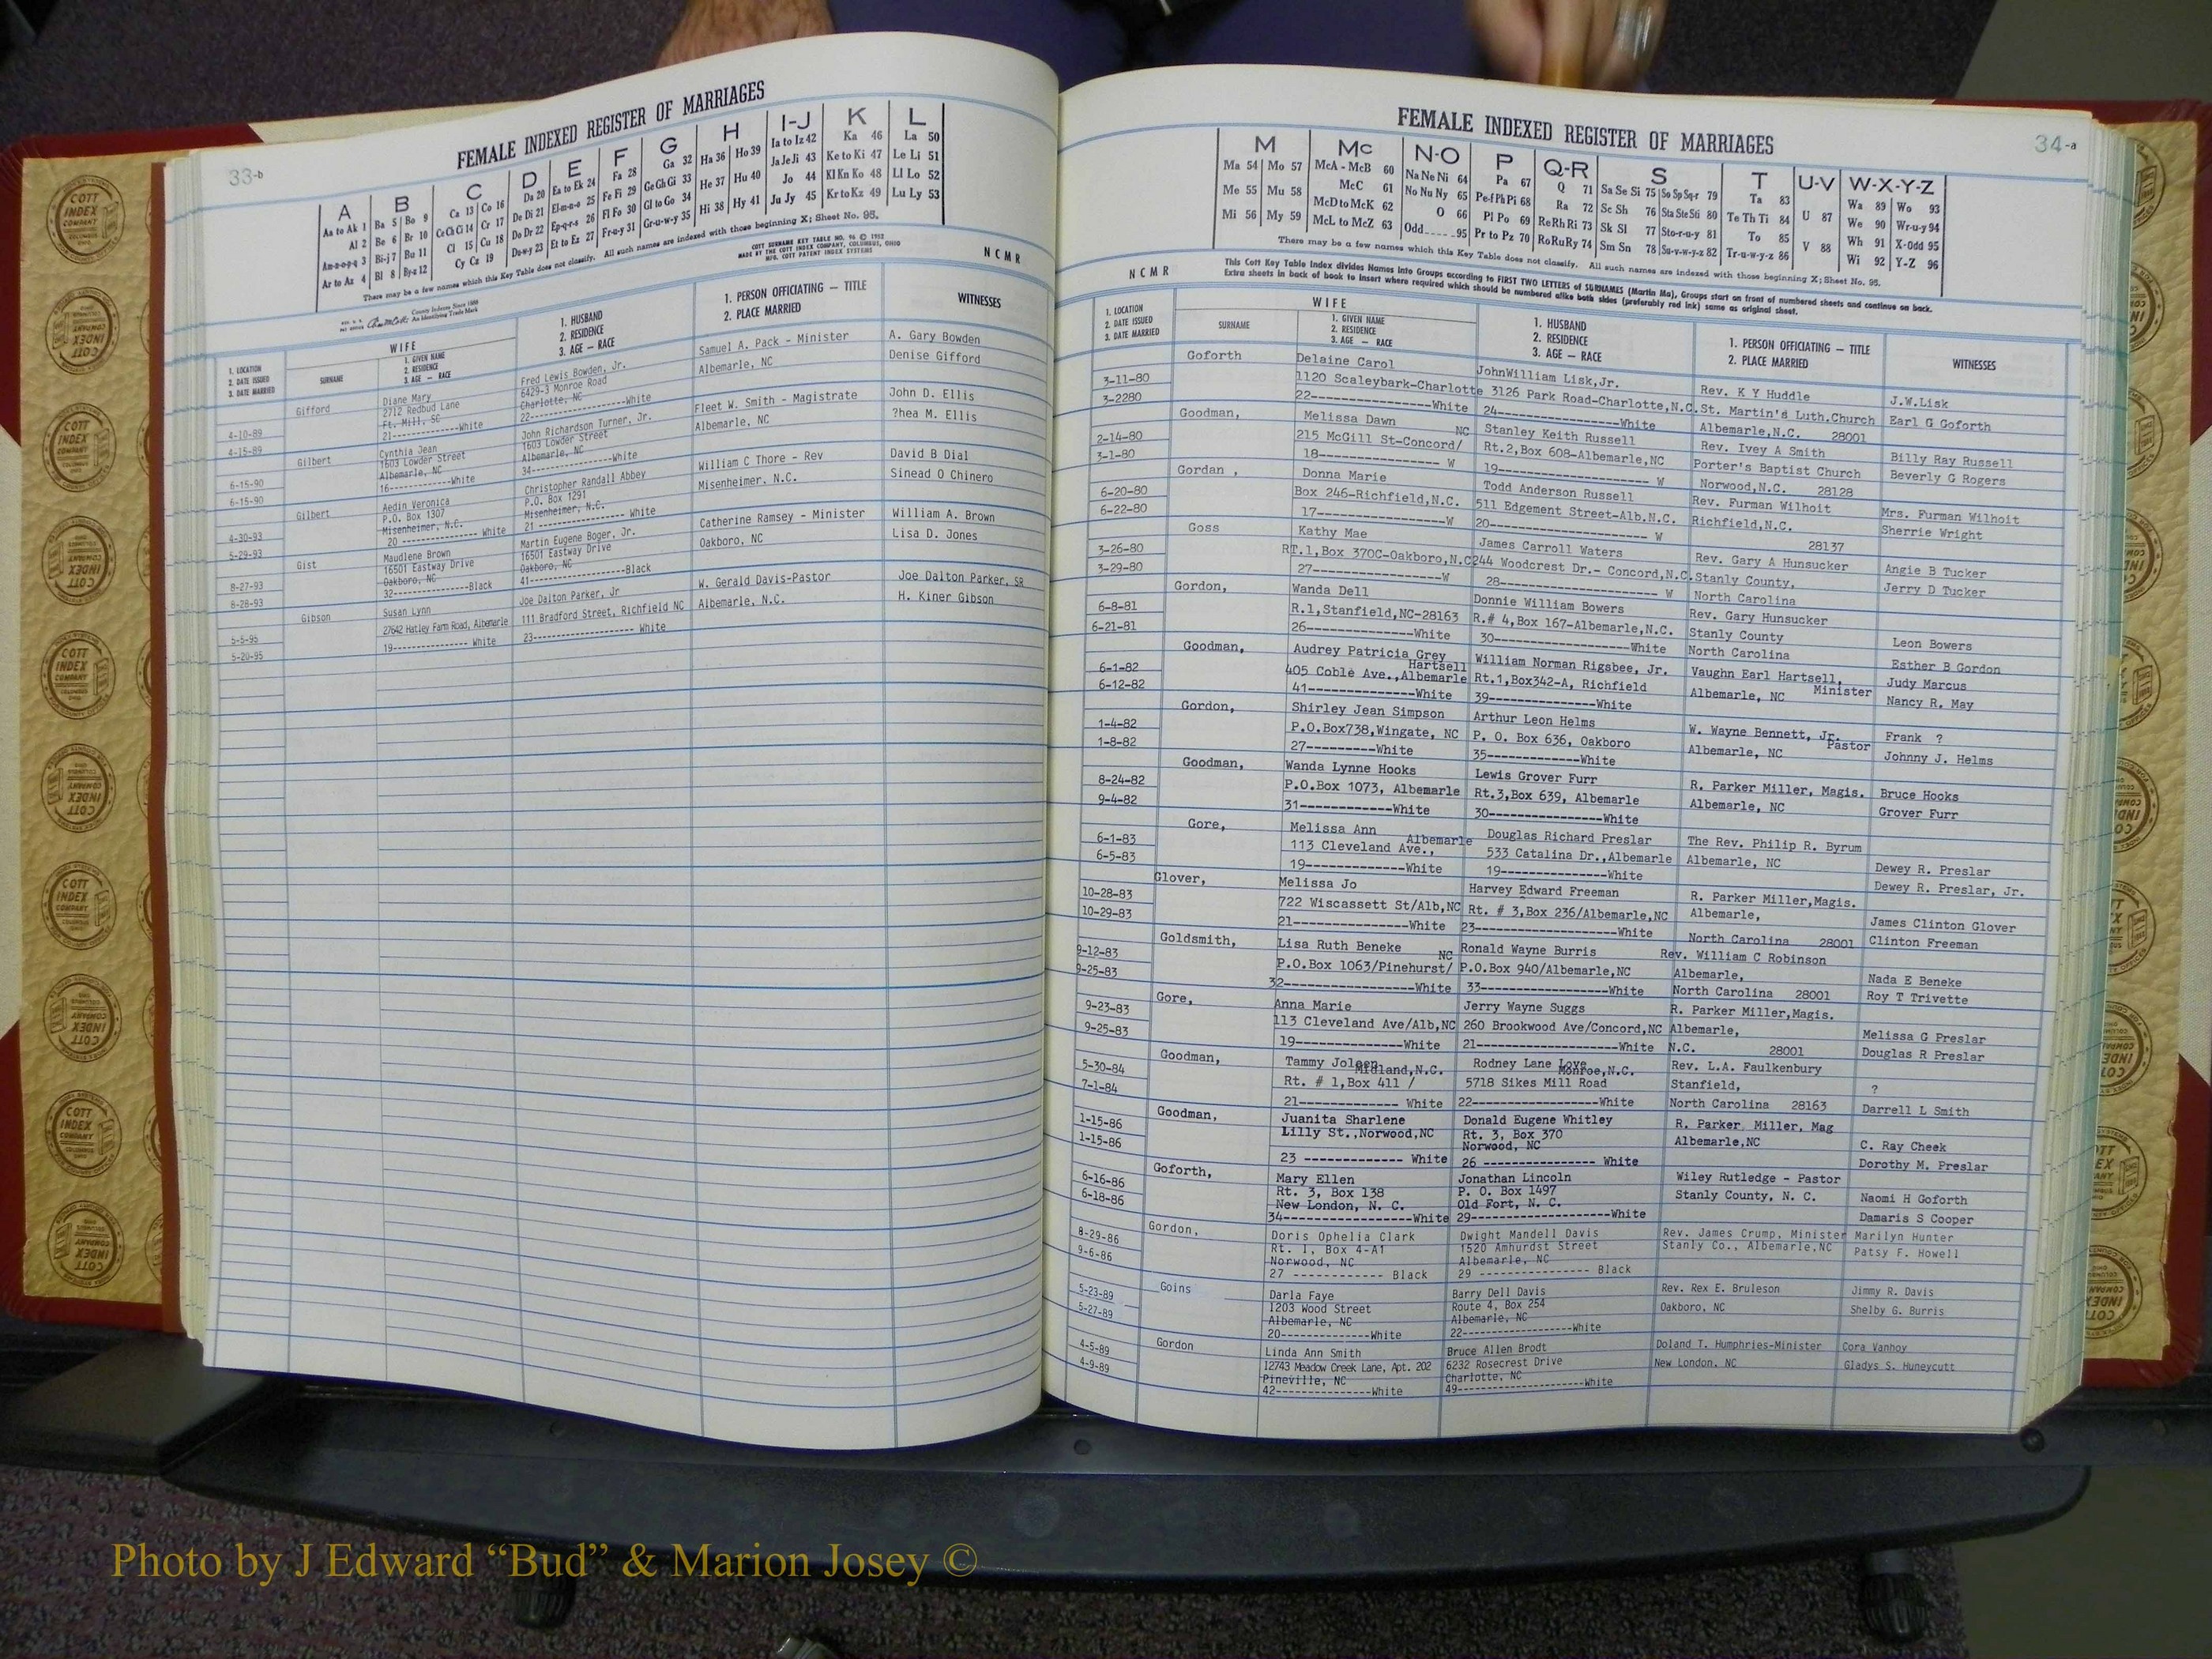 33-b
FEMALE INDEXED REGISTER OF MARRIAGES
A B C D E F G H I-J K L
Aa to Ak 1 Ba 5 Bo 9 Ca 13 Co 16 Da 20 Ea to Ek 24 Fa 28 Ga 32 Ha 36 Ho 39 Ia to Iz 42 Ka 46 La 50
Al 2 Be 6 Br 10 Ce Ch Ci 14 Cr 17 De Di 21 El-m-n-o 25 Fe Fi 29 Ge Gh Gi 33 He 37 Hu 40 Ja Je Ji 43 Ke to Ki 47 Le Li 51
Am-n-o-p-q 3 Bi-j 7 Bu 11 Cl 15 Cu 18 Do Dr 22 Ep-q-r-s 26 Fl Fo 30 Gl to Go 34 Hi 38 Hy 41 Jo 44 Kl Kn Ko 48 Ll Lo 52
Ar to Az 4 Bl 8 By-z 12 Cy Cz 19 Du-w-y 23 Et to Ez 27 Fr-u-y 31 Gr-u-w-y 35 Ju Jy 45 Kr to Kz 49 Lu Ly 53
There may be a few names which this Key Table does not classify. All such names are indexed with those beginning X; Sheet No. 95.
COTT SURNAME KEY TABLE NO. 96 © 1952
MADE BY THE COTT INDEX COMPANY, COLUMBUS, OHIO
MFG. COTT PATENT INDEX SYSTEMS
NCMR
County Indexes Since 1888
An Identifying Trade Mark
1. LOCATION
2. DATE ISSUED
3. DATE MARRIED
WIFE
SURNAME
1. GIVEN NAME
2. RESIDENCE
3. AGE — RACE
1. HUSBAND
2. RESIDENCE
3. AGE — RACE
1. PERSON OFFICIATING — TITLE
2. PLACE MARRIED
WITNESSES
Gifford Diane Mary Fred Lewis Bowden, Jr. Samuel A. Pack - Minister A. Gary Bowden
4-10-89 2712 Redbud Lane 6429-3 Monroe Road Albemarle, NC Denise Gifford
4-15-89 Ft. Mill, SC Charlotte, NC
21------------White 22------------------White
Gilbert Cynthia Jean John Richardson Turner, Jr. Fleet W. Smith - Magistrate John D. Ellis
6-15-90 1603 Lowder Street 1603 Lowder Street Albemarle, NC ?hea M. Ellis
6-15-90 Albemarle, NC Albemarle, NC
16------------White 34---------------White
Gilbert Aedin Veronica Christopher Randall Abbey William C Thore - Rev David B Dial
4-30-93 P.O. Box 1307 P.O. Box 1291 Misenheimer, N.C. Sinead O Chinero
5-29-93 Misenheimer, N.C. Misenheimer, N.C.
20 -------------- White 21 ---------------- White
Gist Maudlene Brown Martin Eugene Boger, Jr. Catherine Ramsey - Minister William A. Brown
8-27-93 16501 Eastway Drive 16501 Eastway Drive Oakboro, NC Lisa D. Jones
8-28-93 Oakboro, NC Oakboro, NC
32---------------Black 41-----------------Black
Gibson Susan Lynn Joe Dalton Parker, Jr W. Gerald Davis-Pastor Joe Dalton Parker, SR
5-5-95 27642 Hatley Farm Road, Albemarle 111 Bradford Street, Richfield NC Albemarle, N.C. H. Kiner Gibson
5-20-95 19-------------- White 23------------------- White
34-a
FEMALE INDEXED REGISTER OF MARRIAGES
M Mc N-O P Q-R S T U-V W-X-Y-Z
Ma 54 Mo 57 McA - McB 60 Na Ne Ni 64 Pa 67 Q 71 Sa Se Si 75 So Sp Sq-r 79 Ta 83 Wa 89 Wo 93
Me 55 Mu 58 McC 61 No Nu Ny 65 Pe-f Ph Pi 68 Ra 72 Sc Sh 76 Sta Ste Sti 80 Te Th Ti 84 U 87 We 90 Wr-u-y 94
McD to McK 62 O 66 Pl Po 69 Re Rh Ri 73 Sk Sl 77 Sto-r-u-y 81 To 85 Wh 91 X-Odd 95
Mi 56 My 59 McL to McZ 63 Odd-----95 Pr to Pz 70 Ro Ru Ry 74 Sm Sn 78 Su-v-w-y-z 82 Tr-u-w-y-z 86 V 88 Wi 92 Y-Z 96
There may be a few names which this Key Table does not classify. All such names are indexed with those beginning X; Sheet No. 95.
NCMR
This Cott Key Table Index divides Names into Groups according to FIRST TWO LETTERS of SURNAMES (Martin Ma), Groups start on front of numbered sheets and continue on back.
Extra sheets in back of book to insert where required which should be numbered alike both sides (preferably red ink) same as original sheet.
1. LOCATION
2. DATE ISSUED
3. DATE MARRIED
WIFE
SURNAME
1. GIVEN NAME
2. RESIDENCE
3. AGE — RACE
1. HUSBAND
2. RESIDENCE
3. AGE — RACE
1. PERSON OFFICIATING — TITLE
2. PLACE MARRIED
WITNESSES
Goforth Delaine Carol JohnWilliam Lisk,Jr. Rev. K Y Huddle J.W.Lisk
3-11-80 1120 Scaleybark-Charlotte 3126 Park Road-Charlotte,N.C. St. Martin's Luth.Church Earl G Goforth
3-2280 22---------------White 24----------------White Albemarle,N.C. 28001
Goodman, Melissa Dawn Stanley Keith Russell Rev. Ivey A Smith Billy Ray Russell
2-14-80 215 McGill St-Concord/ NC Rt.2,Box 608-Albemarle,NC Porter's Baptist Church Beverly G Rogers
3-1-80 18---------------- W 19------------------ W Norwood,N.C. 28128
Gordan , Donna Marie Todd Anderson Russell Rev. Furman Wilhoit Mrs. Furman Wilhoit
6-20-80 Box 246-Richfield,N.C. 511 Edgement Street-Alb.N.C. Richfield,N.C. Sherrie Wright
6-22-80 17-----------------W 20------------------- W 28137
Goss Kathy Mae James Carroll Waters Rev. Gary A Hunsucker Angie B Tucker
3-26-80 RT.1,Box 370C-Oakboro,N.C 244 Woodcrest Dr.- Concord,N.C. Stanly County, Jerry D Tucker
3-29-80 27-----------------W 28------------------- W North Carolina
Gordon, Wanda Dell Donnie William Bowers Rev. Gary Hunsucker Leon Bowers
6-8-81 R.1,Stanfield,NC-28163 R.# 4,Box 167-Albemarle,N.C. Stanly County Esther B Gordon
6-21-81 26---------------White 30-----------------White North Carolina
Goodman, Audrey Patricia Grey Hartsell William Norman Rigsbee, Jr. Vaughn Earl Hartsell, Minister Judy Marcus
6-1-82 405 Coble Ave.,Albemarle Rt.1,Box342-A, Richfield Albemarle, NC Nancy R. May
6-12-82 41--------------White 39--------------White
Gordon, Shirley Jean Simpson Arthur Leon Helms W. Wayne Bennett, Jr. Pastor Frank ?
1-4-82 P.O.Box738,Wingate, NC P. O. Box 636, Oakboro Albemarle, NC Johnny J. Helms
1-8-82 27----------White 35-------------White
Goodman, Wanda Lynne Hooks Lewis Grover Furr R. Parker Miller, Magis. Bruce Hooks
8-24-82 P.O.Box 1073, Albemarle Rt.3,Box 639, Albemarle Albemarle, NC Grover Furr
9-4-82 31------------White 30---------------White
Gore, Melissa Ann Douglas Richard Preslar The Rev. Philip R. Byrum Dewey R. Preslar
6-1-83 113 Cleveland Ave., Albemarle 533 Catalina Dr.,Albemarle Albemarle, NC Dewey R. Preslar, Jr.
6-5-83 19--------------White 19---------------White
Glover, Melissa Jo Harvey Edward Freeman R. Parker Miller,Magis. James Clinton Glover
10-28-83 722 Wiscassett St/Alb,NC Rt. # 3,Box 236/Albemarle,NC Albemarle, Clinton Freeman
10-29-83 21----------------White 23-----------------White North Carolina 28001
Goldsmith, Lisa Ruth Beneke Ronald Wayne Burris Rev. William C Robinson Nada E Beneke
9-12-83 P.O.Box 1063/Pinehurst/ NC P.O.Box 940/Albemarle,NC Albemarle, Roy T Trivette
9-25-83 32-----------------White 33-----------------White North Carolina 28001
Gore, Anna Marie Jerry Wayne Suggs R. Parker Miller,Magis. Melissa G Preslar
9-23-83 113 Cleveland Ave/Alb,NC 260 Brookwood Ave/Concord,NC Albemarle, Douglas R Preslar
9-25-83 19---------------White 21------------------White N.C. 28001
Goodman, Tammy Joleen Rodney Lane Love Rev. L.A. Faulkenbury ?
5-30-84 Rt. # 1,Box 411 / Midland,N.C. 5718 Sikes Mill Road Monroe,N.C. Stanfield, Darrell L Smith
7-1-84 21------------- White 22-----------------White North Carolina 28163
Goodman, Juanita Sharlene Donald Eugene Whitley R. Parker Miller, Mag C. Ray Cheek
1-15-86 Lilly St.,Norwood,NC Rt. 3, Box 370 Albemarle,NC Dorothy M. Preslar
1-15-86 Norwood, NC
23 ------------- White 26 ---------------- White
Goforth, Mary Ellen Jonathan Lincoln Wiley Rutledge - Pastor Naomi H Goforth
6-16-86 Rt. 3, Box 138 P. O. Box 1497 Stanly County, N. C. Damaris S Cooper
6-18-86 New London, N. C. Old Fort, N. C.
34------------------White 29------------------White
Gordon, Doris Ophelia Clark Dwight Mandell Davis Rev. James Crump, Minister Marilyn Hunter
8-29-86 Rt. 1, Box 4-A1 1520 Amhurdst Street Stanly Co., Albemarle,NC Patsy F. Howell
9-6-86 Norwood, NC Albemarle, NC
27 ------------- Black 29 --------------- Black
Goins Darla Faye Barry Dell Davis Rev. Rex E. Bruleson Jimmy R. Davis
5-23-89 1203 Wood Street Route 4, Box 254 Oakboro, NC Shelby G. Burris
5-27-89 Albemarle, NC Albemarle, NC
20--------------White 22-----------------White
Gordon Linda Ann Smith Bruce Allen Brodt Doland T. Humphries-Minister Cora Vanhoy
4-5-89 12743 Meadow Creek Lane, Apt. 202 6232 Rosecrest Drive New London, NC Gladys S. Huneycutt
4-9-89 Pineville, NC Charlotte, NC
42---------------White 49-------------------White
Photo by J Edward “Bud” & Marion Josey ©